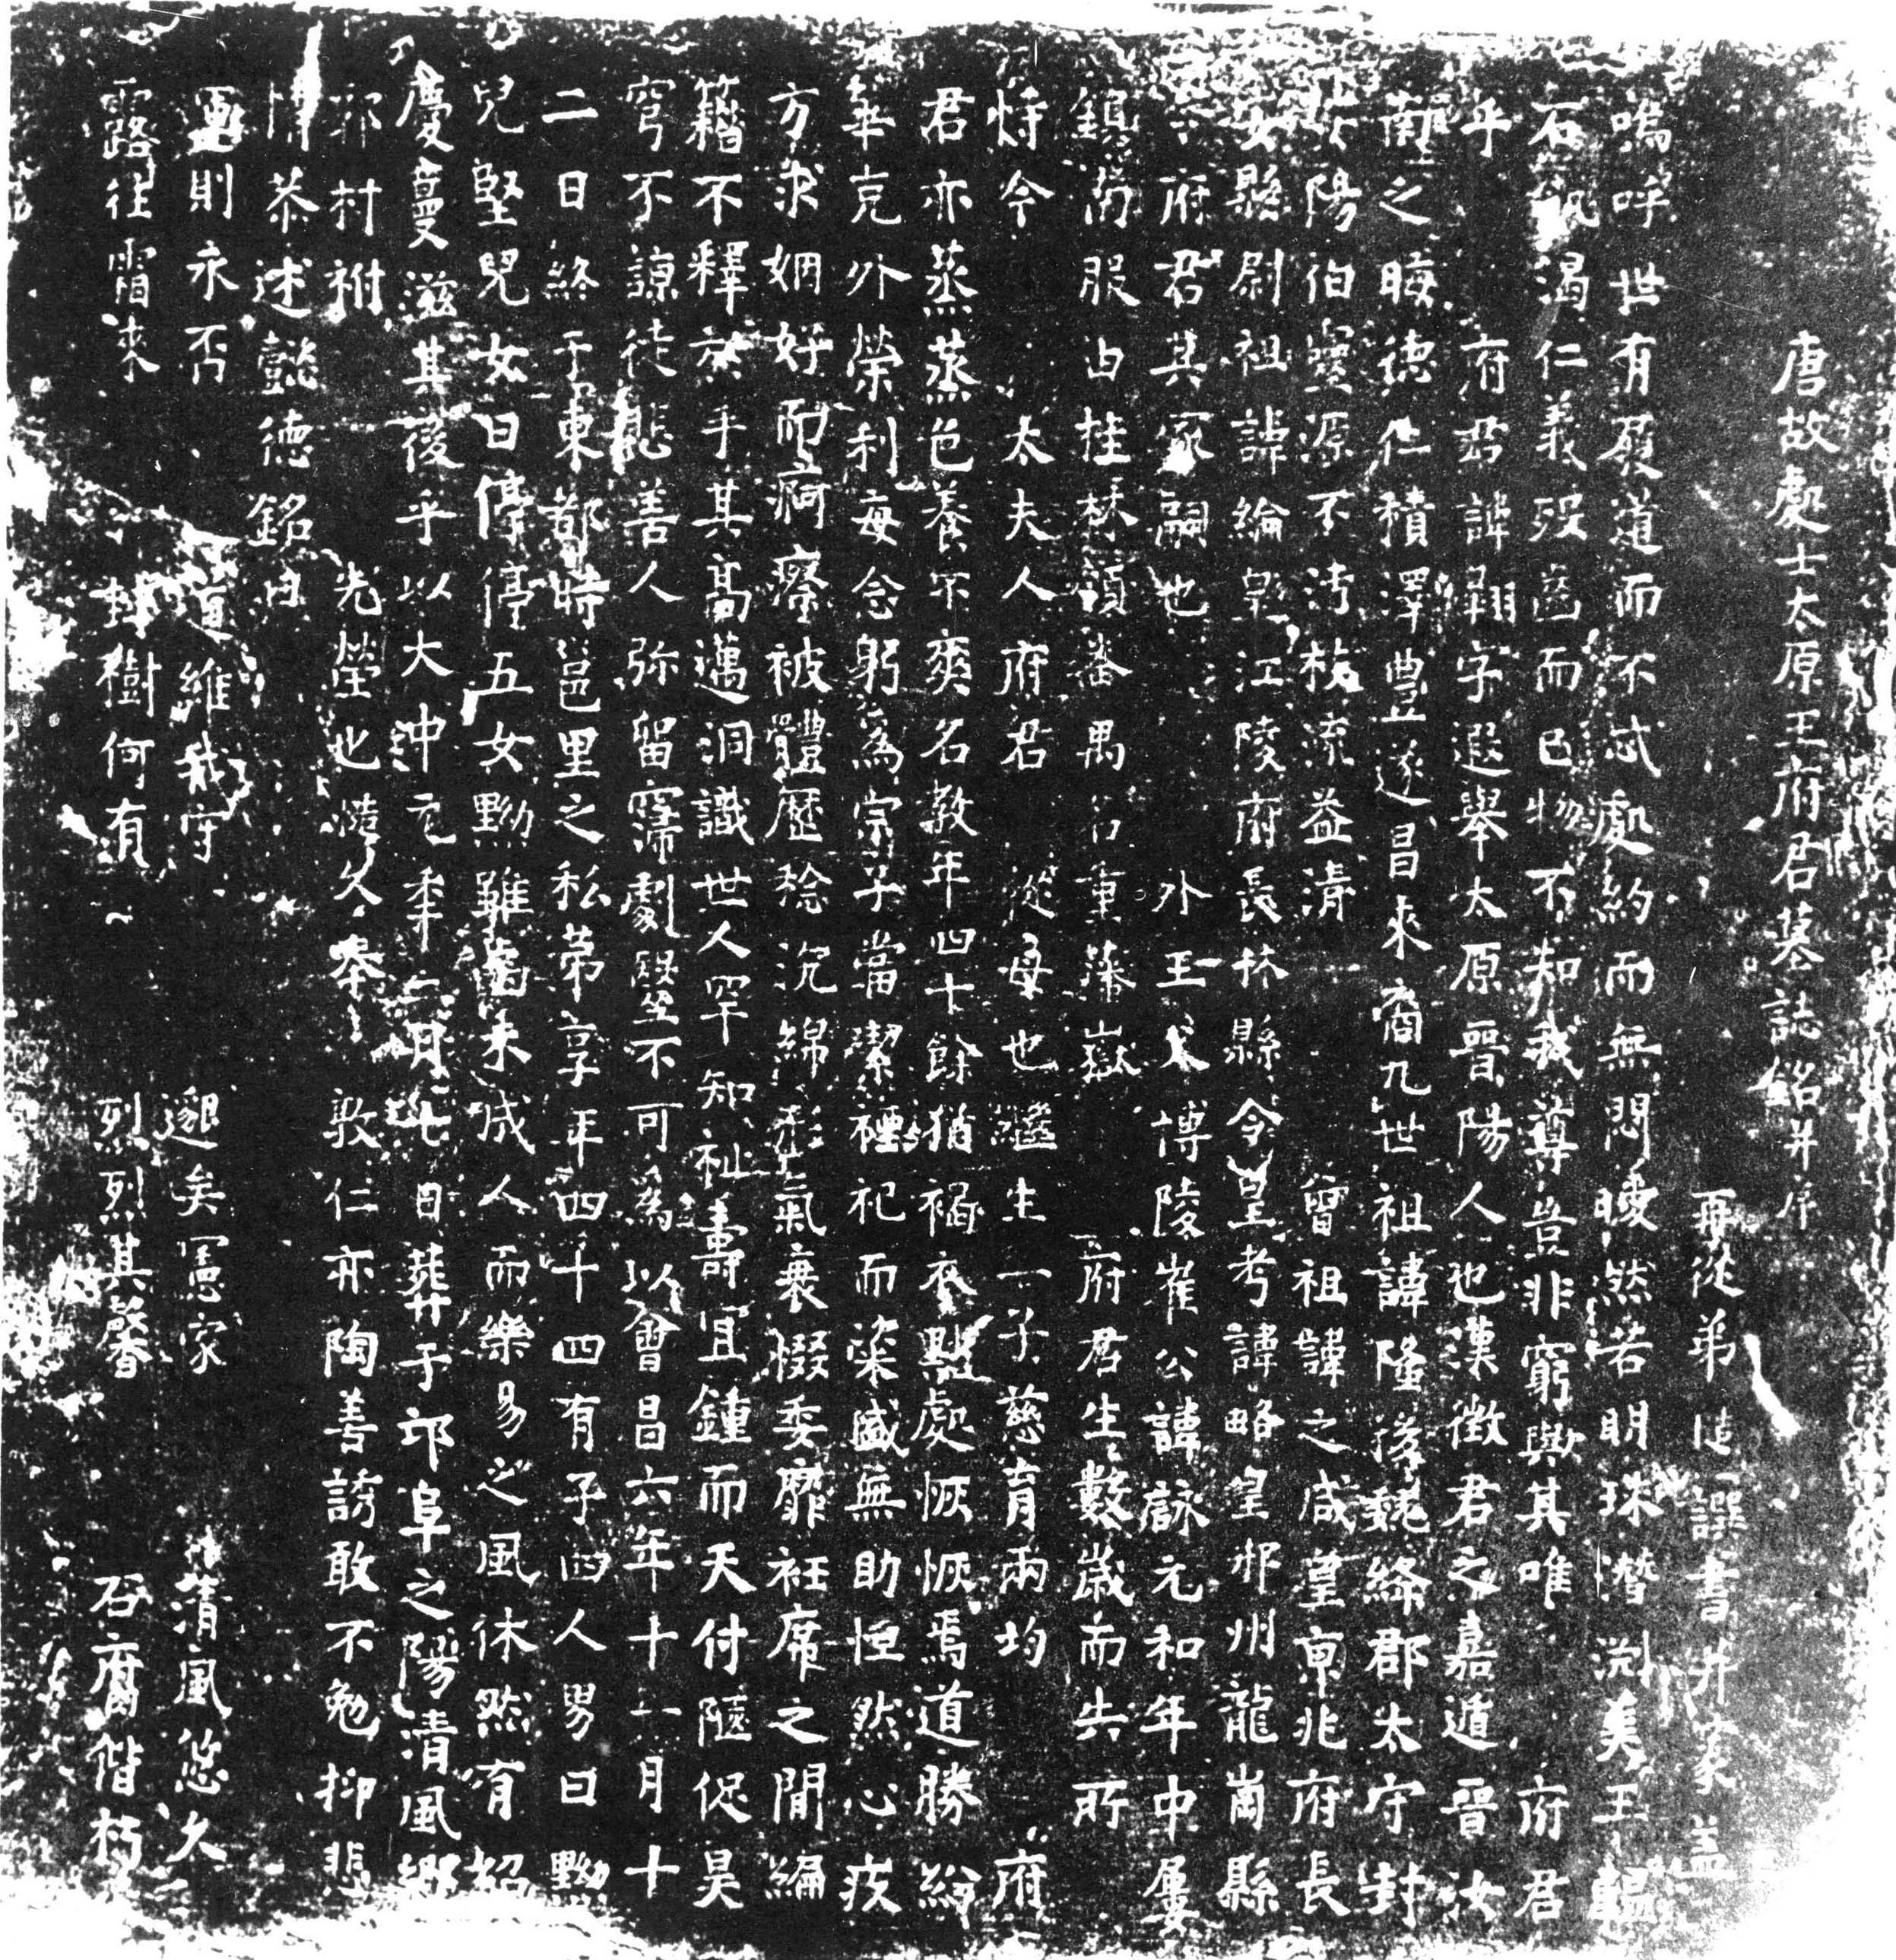 唐故處士太原王府君墓誌銘并序
再從弟 譔書并篆蓋
嗚呼世有履道而不忒處約而無悶曖然若明珠潛渕美玉韞
石飢渴仁義歿齒而已物不知我尊豈非窮與其唯 府君
乎 府君諱翱字遐舉太原晉陽人也漢徵君之嘉遁晉汝
南之晦德仁積澤豐遂昌來裔九世祖諱隆後魏絳郡太守封
陽伯靈源不渟枝流益清 曾祖諱之咸皇京兆府長
安縣尉祖諱綸皇江陵府長林縣令皇考諱略皇邢州龍崗縣
府君其冢嗣也 外王父博陵崔公諱詠元和年中屢
鎮南服由桂林領番禺名重藩嶽 府君生數歲而失所
恃今 太夫人府君 從母也繼生一子慈育兩均 府
君亦蒸蒸色養不爽名教年四十餘猶褐衣黜處恢恢焉道勝紛
華克外榮利每念躬為宗子當潔禋祀而粢盛無助怛然心疚
方求姻好而痾瘵被體歷稔沉綿形氣衰惙委靡衽席之間編
籍不釋於手其高邁洞識世人罕知祉壽宜鍾而天付隘促昊
穹不諒徒悲善人弥留寢劇堅不可為以會昌六年十一月十
二日終于東都時邕里之私第享年四十四有子四人男曰黝
兒堅兒女曰停停五女黝雖齒未成人而樂易之風休然有紹
慶蔓滋其後乎以大中元年二月七日葬于邙阜之陽清風鄉
郭村祔 先塋也慥久奉 敦仁亦陶善誘敢不勉抑悲
情恭述懿德銘曰
道維我守 邈矣憲家 清風悠久
運則永否
露往霜來 樹何有 烈烈其馨 石腐偕朽